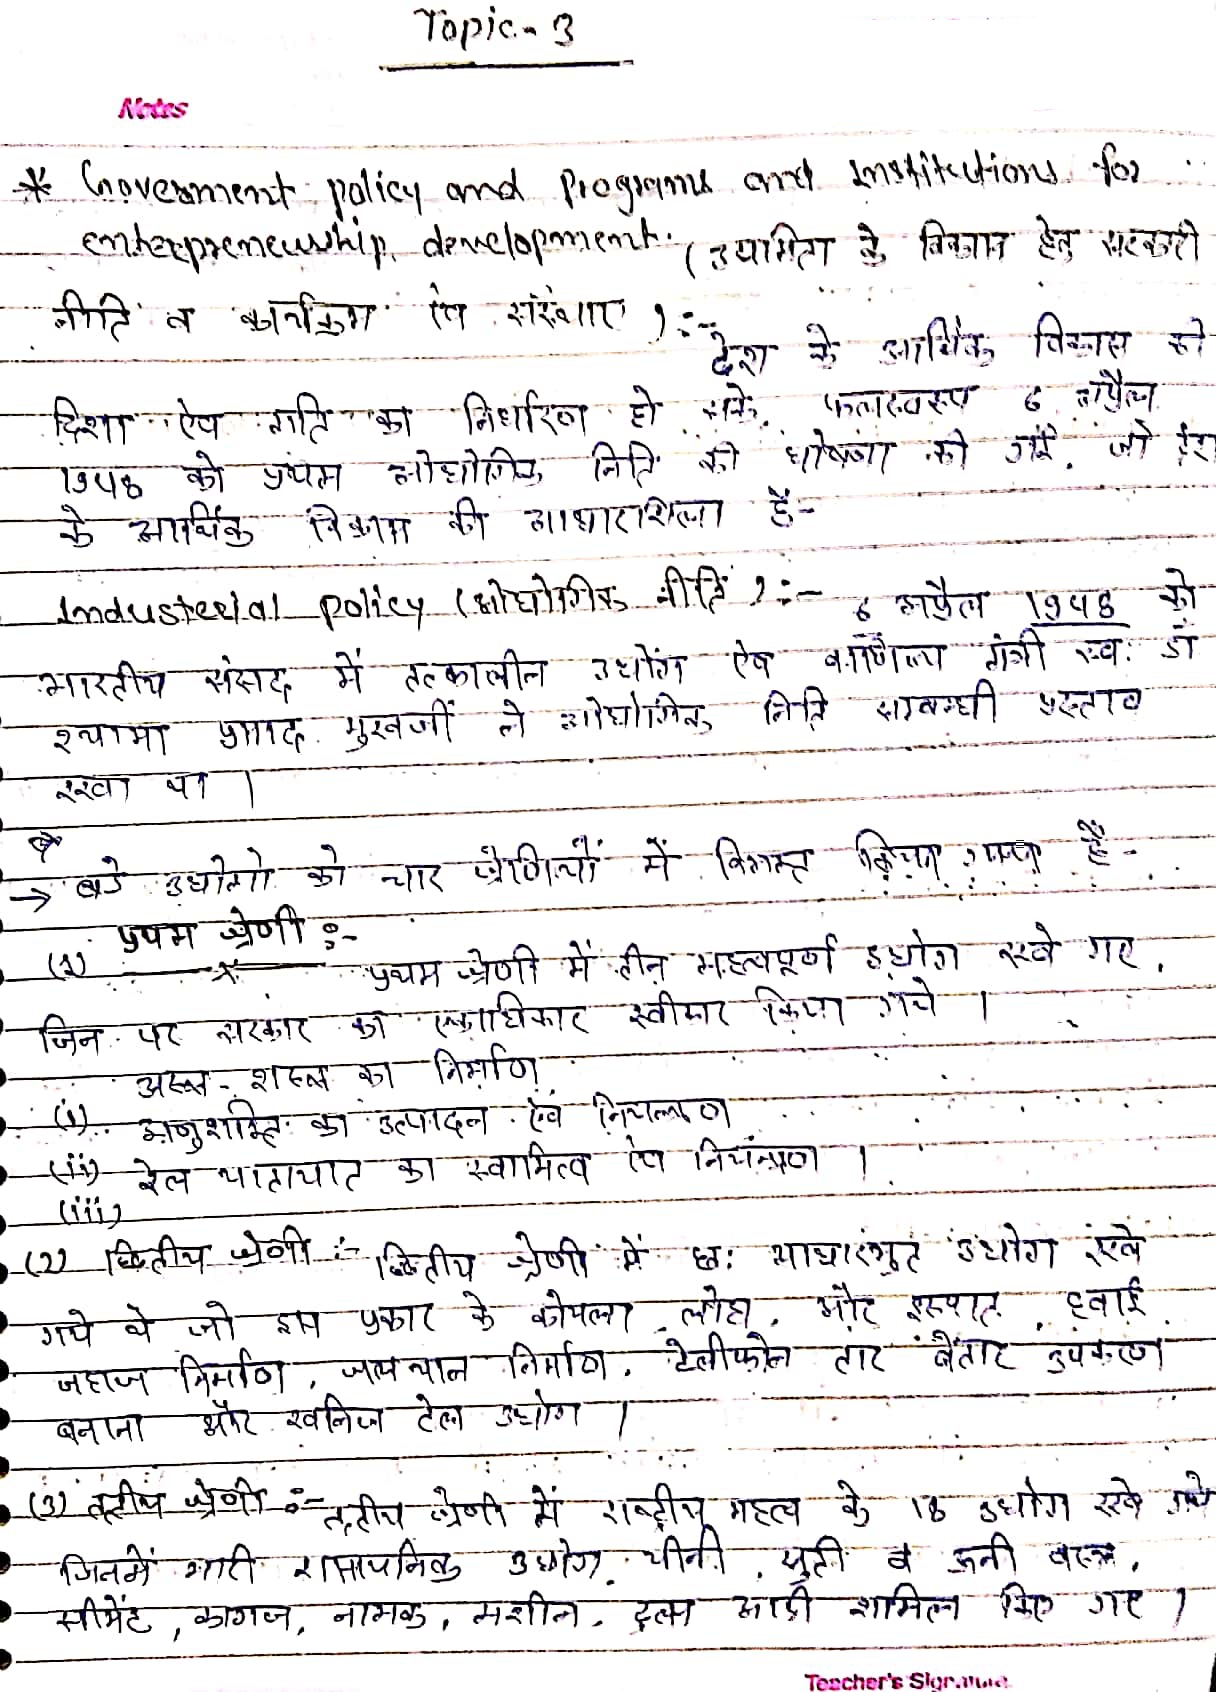 Topic-3
Notes
* Government policy and Programs and Institutions for
enterpreneurship development. (उद्यामिता के विकास हेतु सरकारी
नीति व कार्यक्रम ऐव संस्थाए ) :-
देश के आर्थिक विकास को
दिशा ऐव गति का निर्धारण हो सके, फलस्वरूप 6 अप्रैल
1948 को प्रथम ओधोगिक निति की घोषणा की गई, जो देश
के आर्थिक विकास की आधारशिला है-
Industerial policy (ओधोगिक नीति ) :- 6 अप्रैल 1948 को
भारतीय संसद में तत्कालीन उधोग ऐव वाणिज्य मंत्री स्व: डॉ
श्यामा प्रसाद मुखर्जी ने ओधोगिक निति सम्बन्धी प्रस्ताव
रखा था |
→ बडे उधोगो को चार श्रेणियों में विभक्त किया गया है -
प्रथम श्रेणी :-
(1) प्रथम श्रेणी में तीन महत्वपूर्ण उधोग रखे गए,
जिन पर सरकार का एकाधिकार स्वीकार किया गये |
अस्त्र - शस्त्र का निर्माण
(i) अणुशक्ति का उत्पादन ऐव नियन्त्रण
(ii) रेल यातायात का स्वामित्व ऐव नियंन्त्रण |
(iii)
(2) द्वितीय श्रेणी :- द्वितीय श्रेणी में छ: आधारभुत उधोग रखे
गये थे जो इस प्रकार के कोयला, लोहा, और इस्पात, हवाई
जहाज निर्माण, जलयान निर्माण, टेलीफोन तार बेतार उपकरण
बनाना और खनिज तेल उधोग |
(3) तृतीय श्रेणी :- तृतीय श्रेणी में राष्ट्रीय महत्व के 18 उधोग रखे गये
जिनमें भारी रासायनिक उधोग, चीनी, सुती व ऊनी वस्त्र,
सीमेंट, कागज, नामक, मशीन, टूल्स आदी शामिल किए गए |
Teacher's Signature